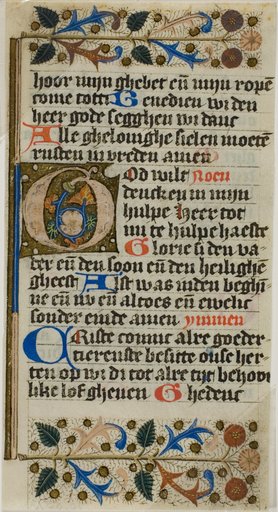 hoor mijn ghebet eñ mijn ropē
come tot ti Benedien wi den
heer gode segghen wi danc
Alle ghelouighe sielen moetē
rusten in vreden amen
God wilt Noen
dencken in mijn
hulpe Heer tot
mi te hulpe haeste
Glorie si den va-
der eñ den soon eñ den heilighē
gheest Alst was inden beghī
ne eñ nv eñ altoes eñ ewelic
sonder einde amen ymmen
Criste comme alre goeder-
tierenste besitte onse her-
ten op wi di tot alre tijt behoor-
like lof gheuen Ghedenc